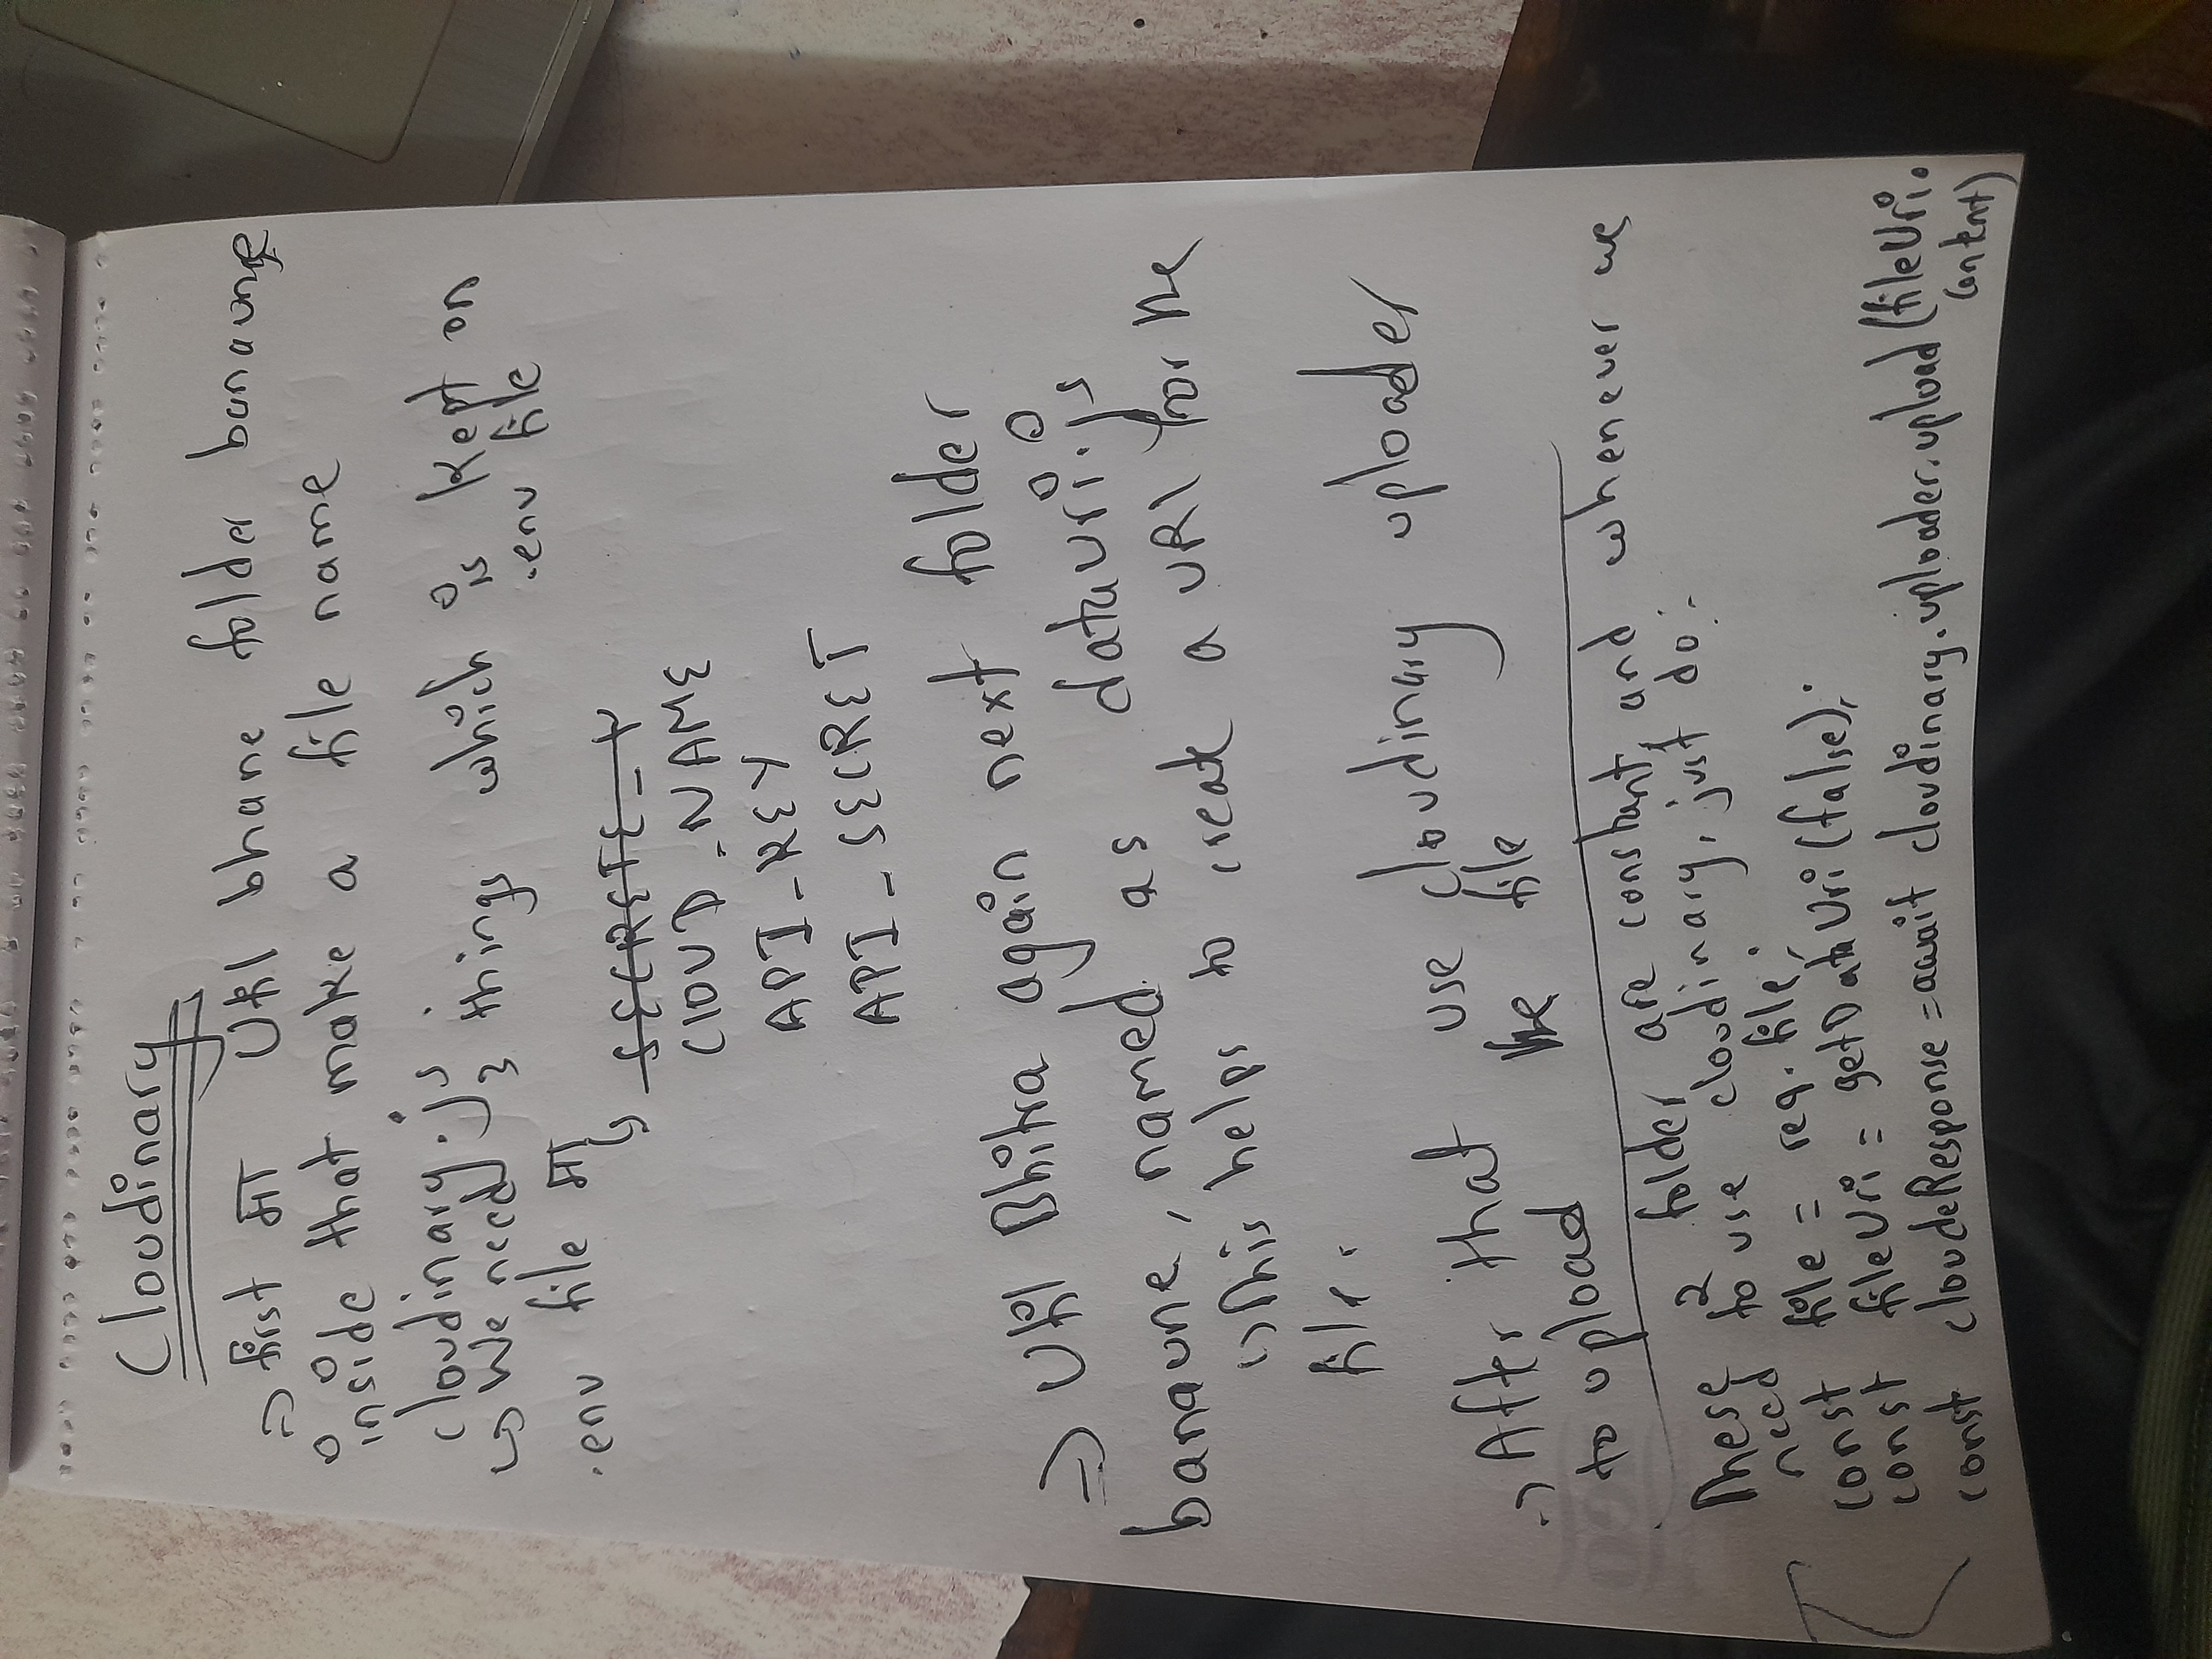 Cloudinary
=> first मा Util bhane folder banaune
inside that make a file name
cloudinary.js
↳ We need 3 things which is kept on
.env file
.env file मा
↳ SECRETE_K
CLOUD_NAME
API_KEY
API_SECRET
=> Util Bhitra again next folder
banaune, named as datauri.js
↳ This helps to create a URI for the
file.
-> After that use cloudinary uploader
to upload the file
These 2 folder are constant, and whenever we
need to use cloudinary, just do:
const file = req.file;
const fileUri = getDataUri(false);
const cloudeResponse = await cloudinary.uploader.upload(fileUri.
content)